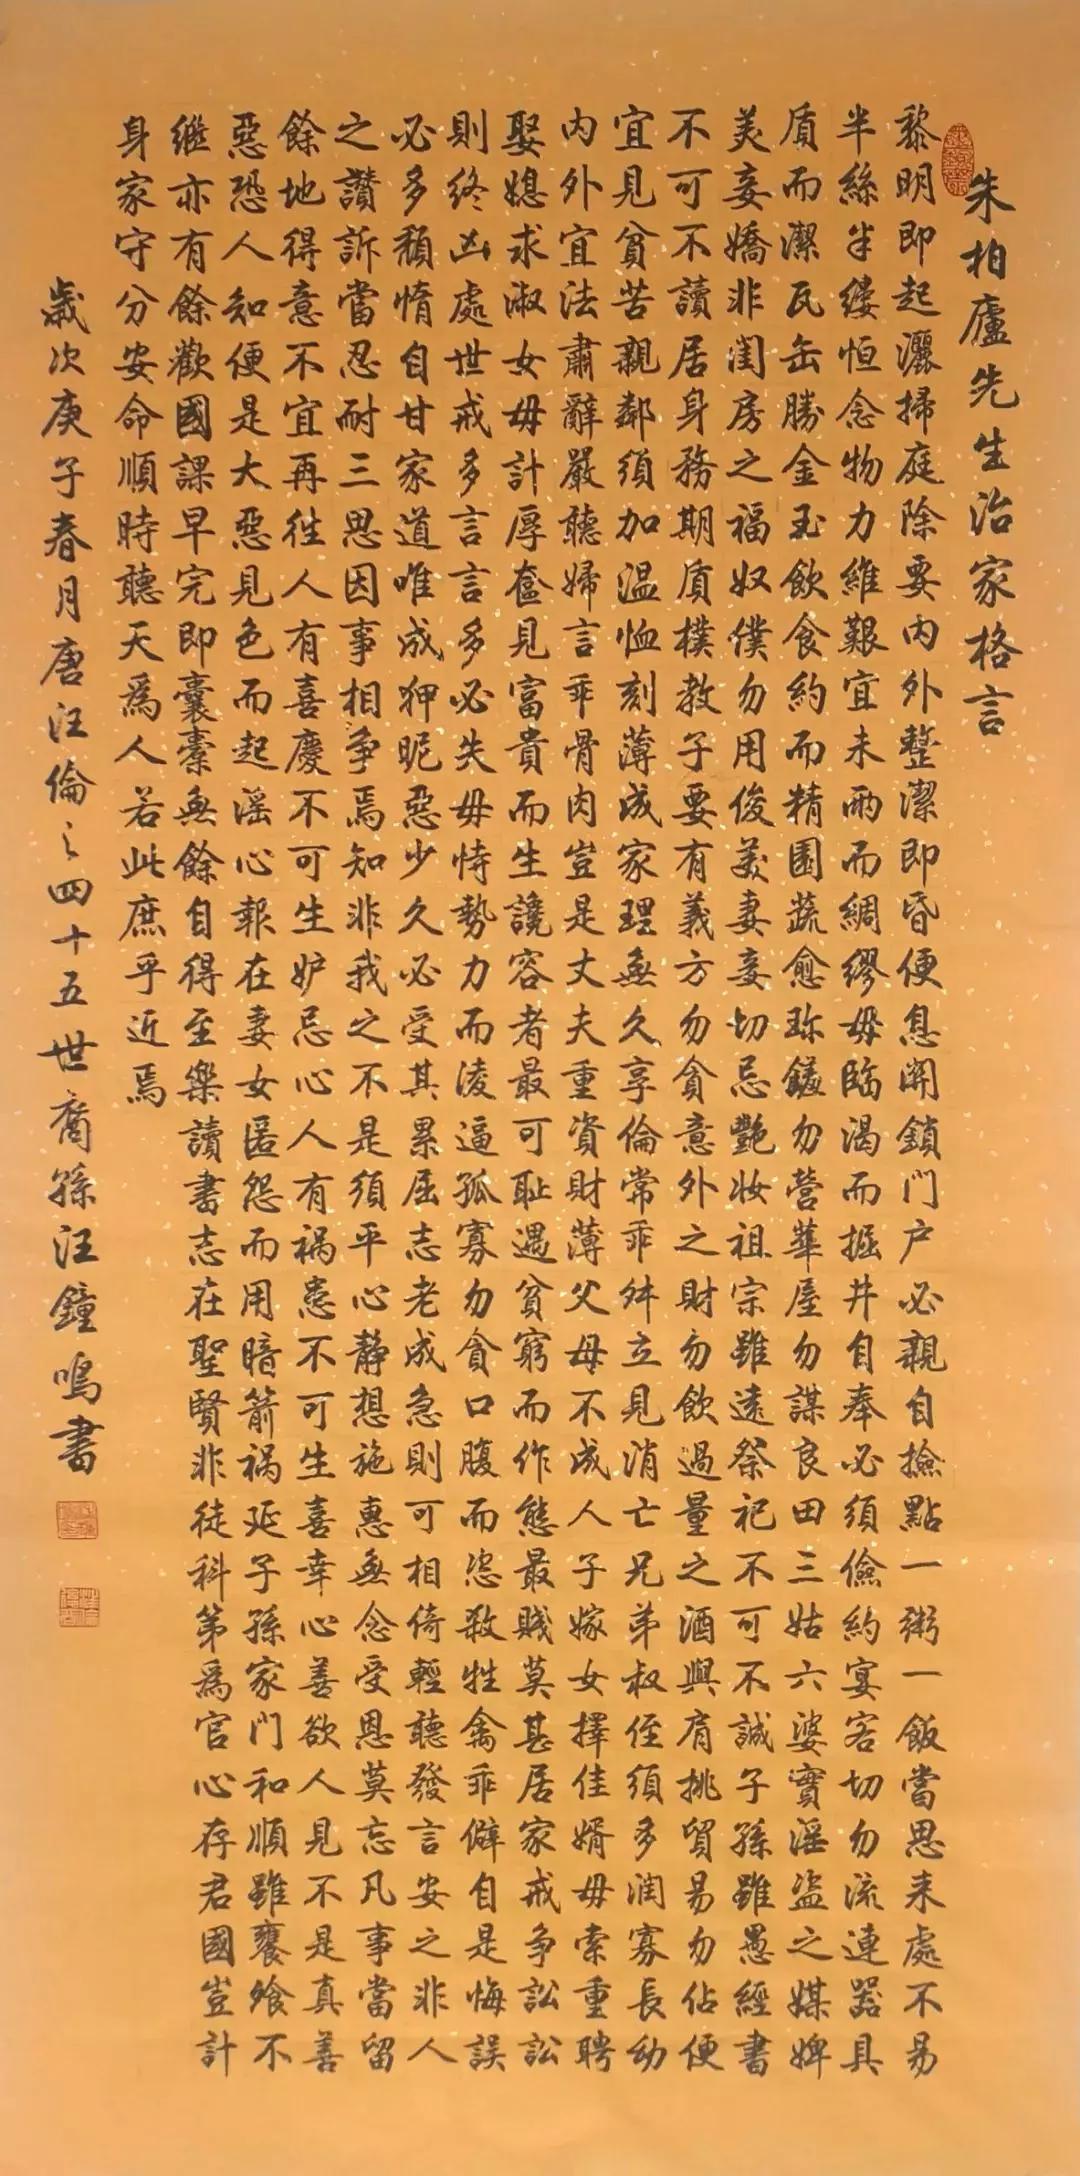 朱柏廬先生治家格言
黎明即起灑掃庭除要內外整潔即昏便息關鎖門户必親自撿點一粥一飯當思来處不易
半絲半縷恒念物力維艱宜未雨而綢繆毋臨渴而掘井自奉必須儉約宴客切勿流連器具
質而潔瓦缶勝金玉飲食約而精園蔬愈珍饈勿營華屋勿謀良田三姑六婆實淫盗之媒婢
美妾嬌非閨房之福奴僕勿用俊美妻妾切忌艷妝祖宗雖遠祭祀不可不誠子孫雖愚經書
不可不讀居身務期質樸教子要有義方勿貪意外之財勿飲過量之酒與肩挑貿易勿佔便
宜見貧苦親鄰須加温恤刻薄成家理無久享倫常乖舛立見消亡兄弟叔侄須多潤寡長幼
内外宜法肅辭嚴聽婦言乖骨肉豈是丈夫重資財薄父母不成人子嫁女擇佳婿毋索重聘
娶媳求淑女毋計厚奩見富貴而生讒容者最可耻遇貧窮而作態最賤莫甚居家戒争訟訟
則終凶處世戒多言言多必失毋恃勢力而淩逼孤寡勿貪口腹而恣殺牲禽乖僻自是悔誤
必多頹惰自甘家道唯成狎昵惡少久必受其累屈志老成急則可相倚輕聽發言安之非人
之讚訴當忍耐三思因事相争焉知非我之不是須平心静想施惠無念受恩莫忘凡事當留
餘地得意不宜再往人有喜慶不可生妒忌心人有禍患不可生喜幸心善欲人見不是真善
惡恐人知便是大惡見色而起淫心報在妻女匿怨而用暗箭禍延子孫家門和順雖饔飧不
繼亦有餘歡國課早完即囊橐無餘自得至樂讀書志在聖賢非徒科第為官心存君國豈計
身家守分安命順時聽天為人若此庶乎近焉
歲次庚子春月唐汪倫之四十五世裔孫汪鐘鳴書